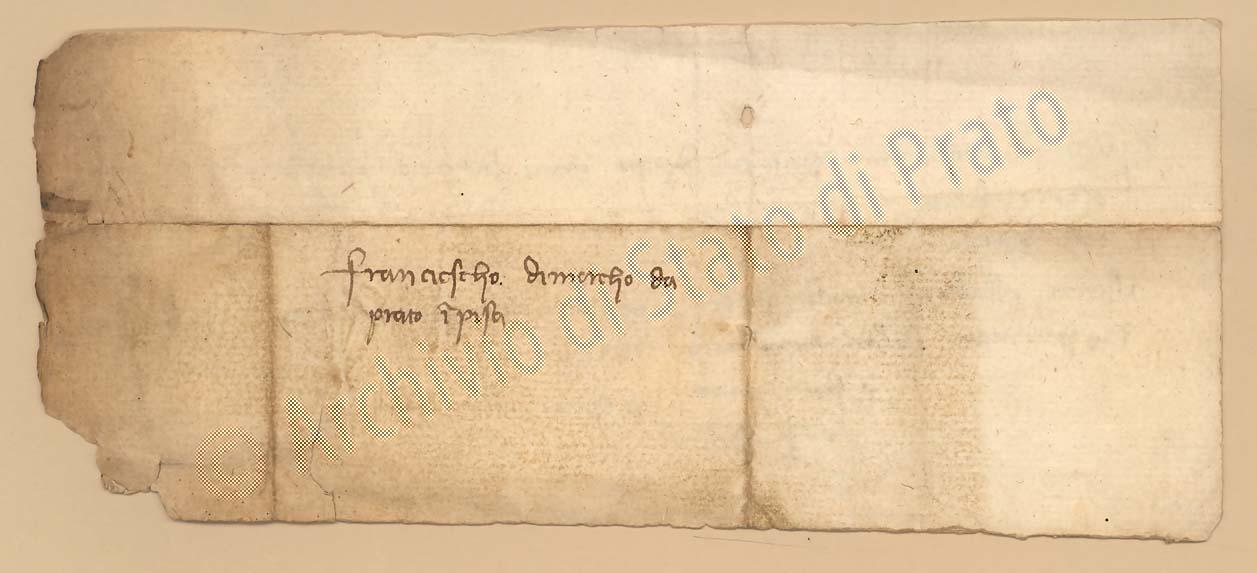 Franciescho dimarcho da
prato i͂ pisa
© Archivio di Stato di Prato